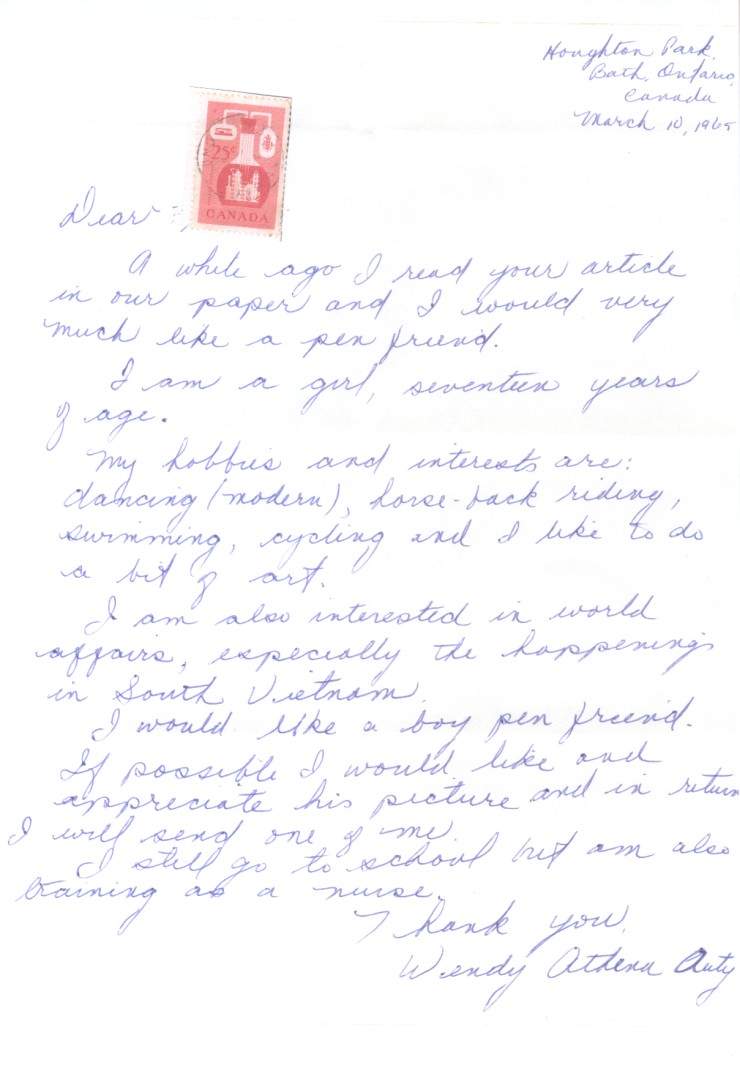 Houghton Park,
Bath, Ontario,
Canada
March 10, 1965
25¢
CANADA
Dear
A while ago I read your article
in our paper and I would very
much like a pen friend.
I am a girl, seventeen years
of age.
My hobbies and interests are:
dancing (modern), horse-back riding,
swimming, cycling and I like to do
a bit of art.
I am also interested in world
affairs, especially the happenings
in South Vietnam.
I would like a boy pen friend.
If possible I would like and
appreciate his picture and in return
I will send one of me.
I still go to school but am also
training as a nurse.
Thank you,
Wendy Athena Auty